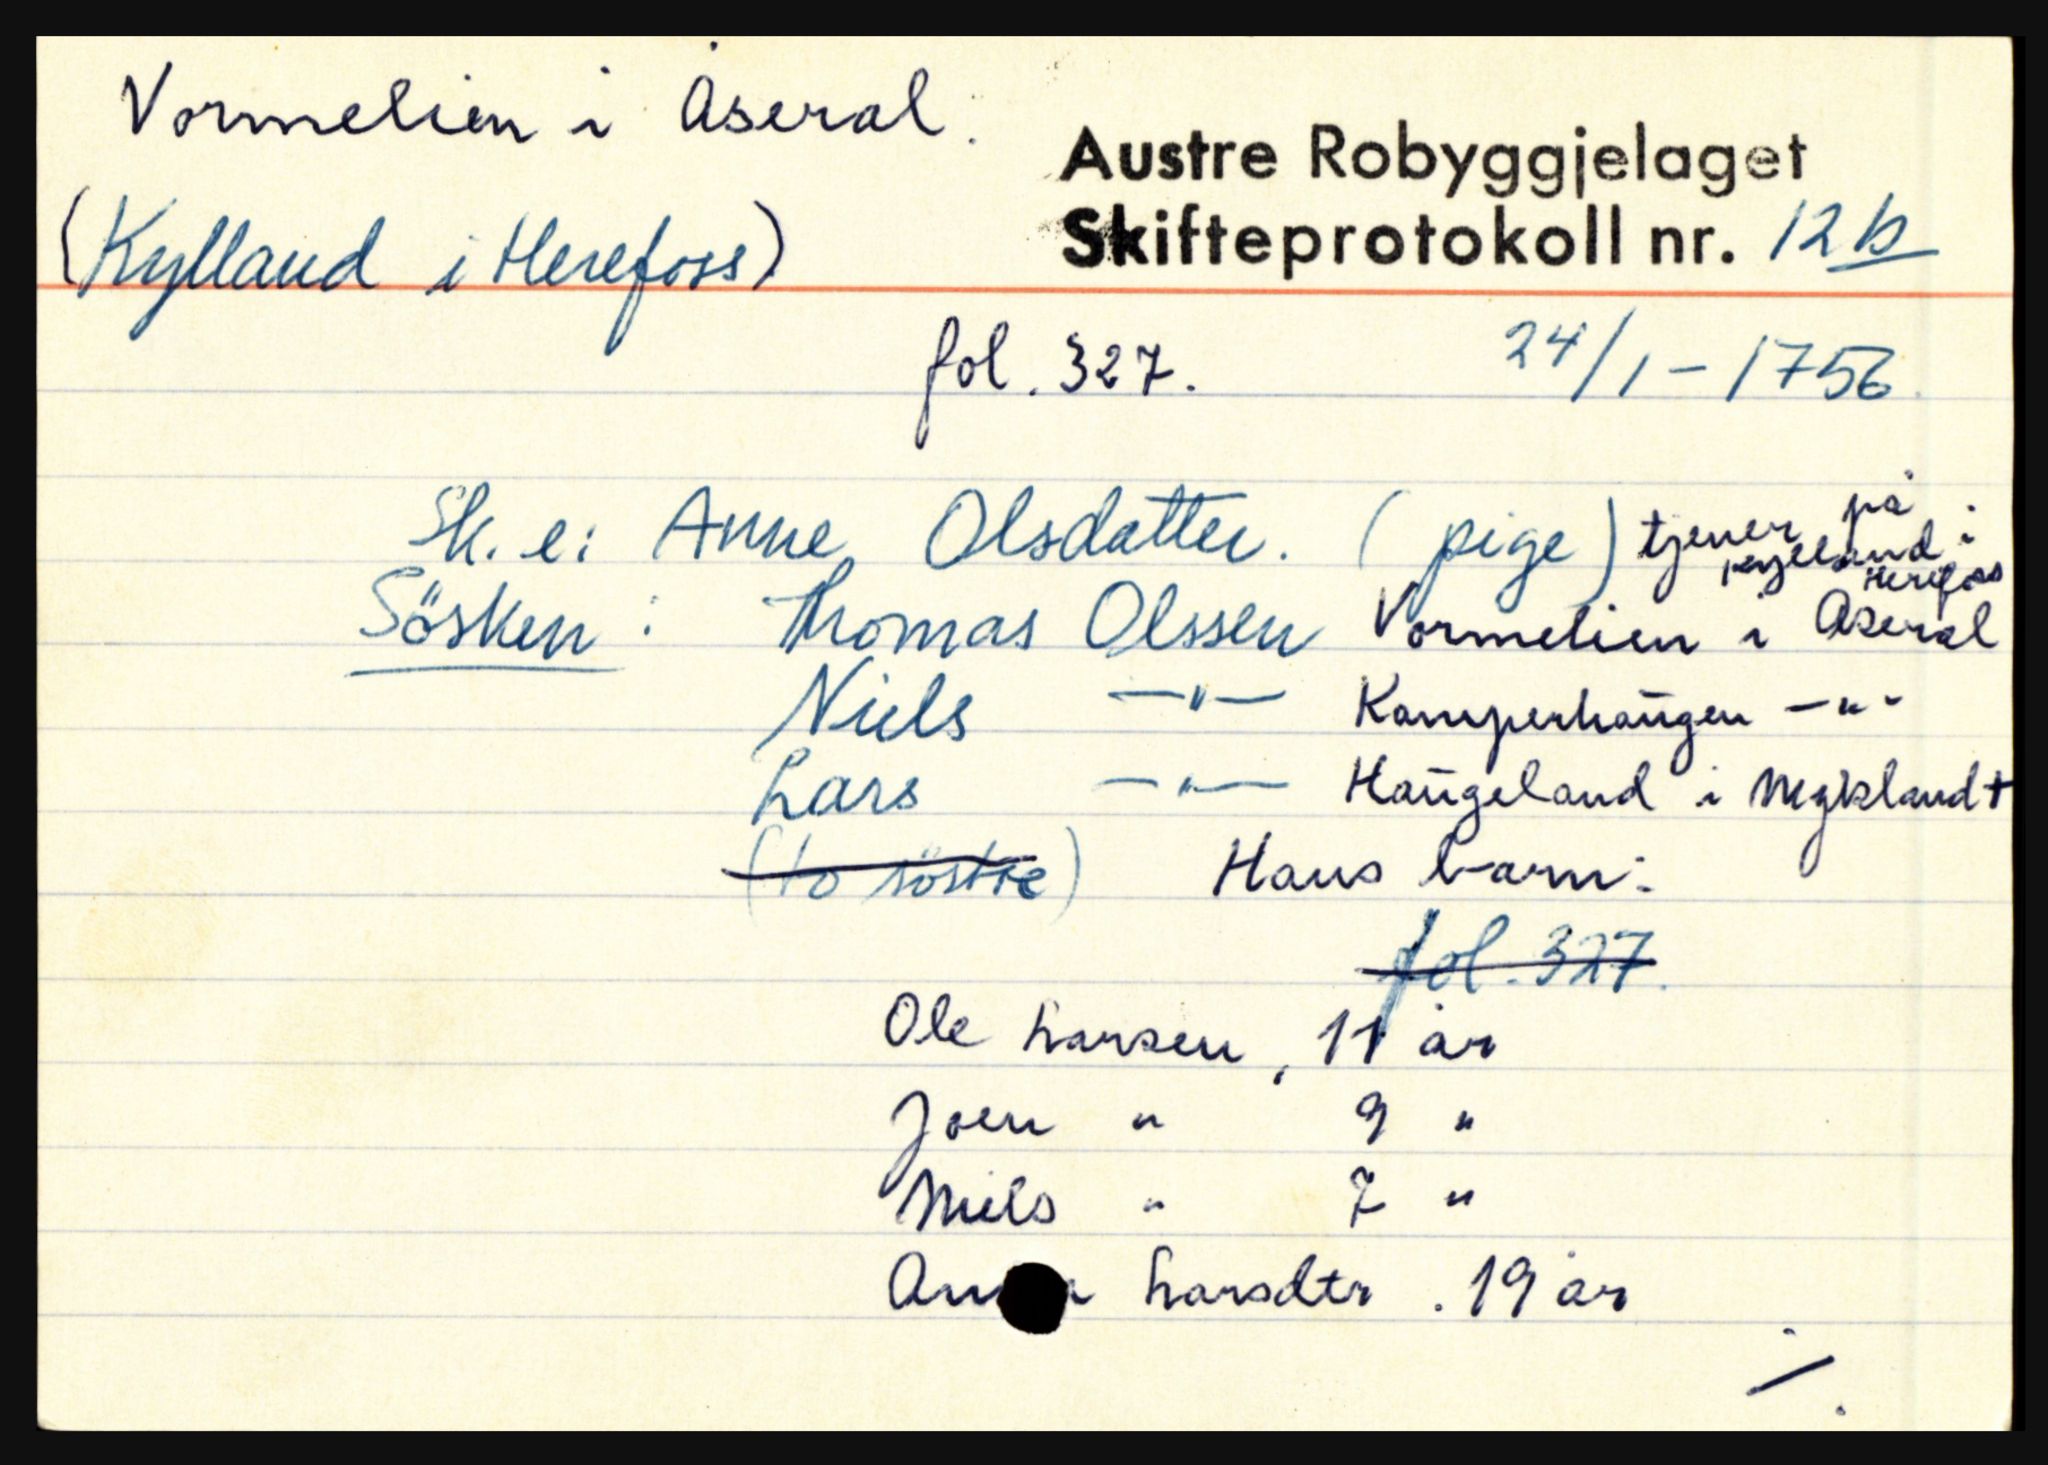 Vormelien i Åseral.
Austre Robyggjelaget
(Kylland i Herefoss)
Skifteprotokoll nr. 12b
fol. 327. 24/1-1756.
Sk. e: Anne Olsdatter. (pige) tjener på Kylland i Herefoss
Sösken: Thomas Olssen Vormelien i Åseral
Niels —"— Kamperhaugen —"-
Lars —"— Haugeland i Myklandt
(to söstre) Hans barn:
fol. 327.
Ole Larsen, 11 år
Joen " 9 "
Niels " 7 "
Larsdtr. 19 år
/.